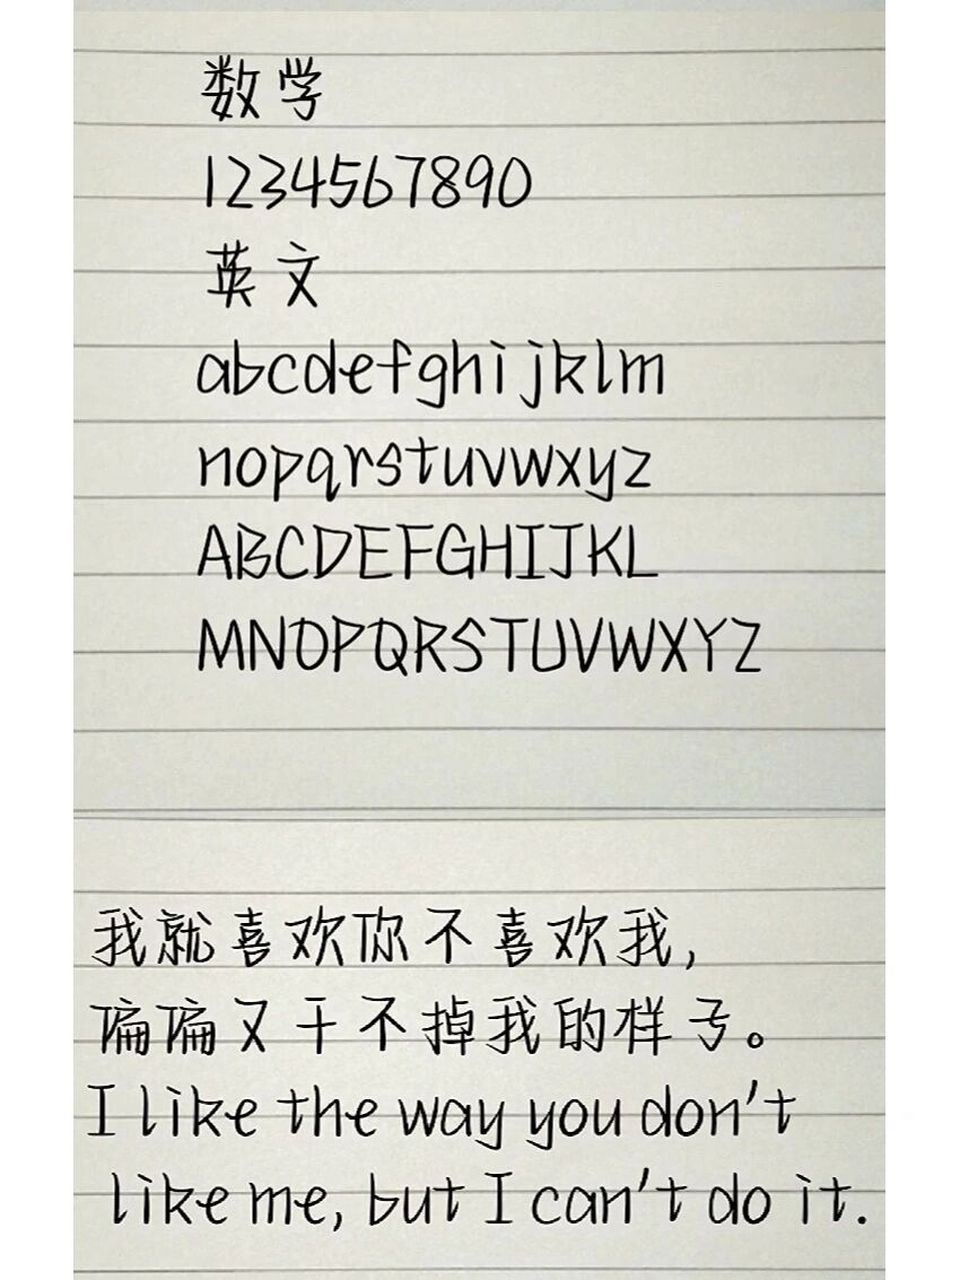 数学
1234567890
英文
abcdefghijklm
nopqrstuvwxyz
ABCDEFGHIJKL
MNOPQRSTUVWXYZ
我就喜欢你不喜欢我,
偏偏又干不掉我的样子。
I like the way you don't
like me, but I can't do it.